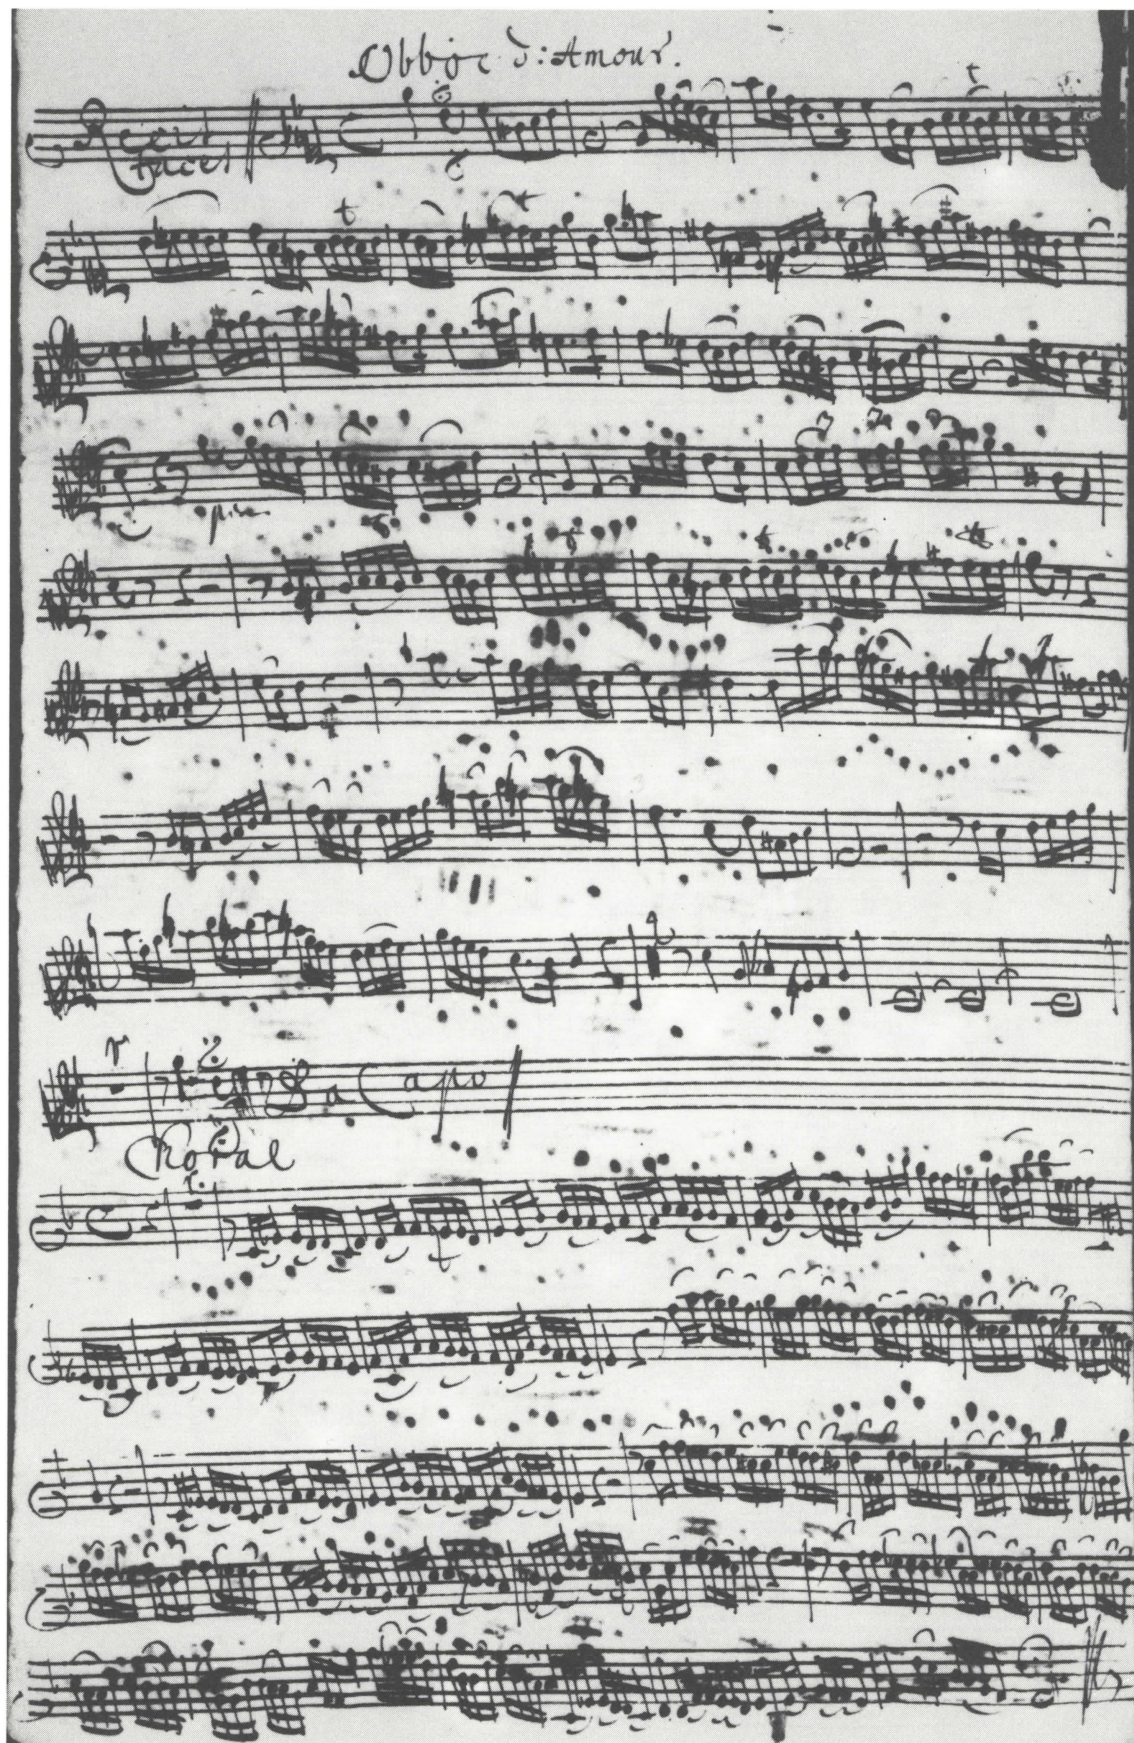 Obboe d'Amour.
Recit
tacet
pia
Da Capo
Choral